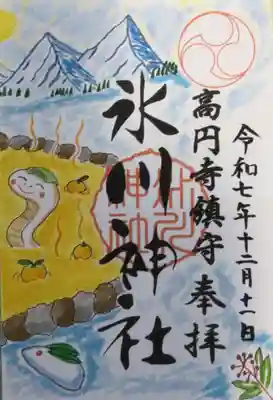 令和七年十二月十一日
高円寺鎮守 奉拝
氷川神社